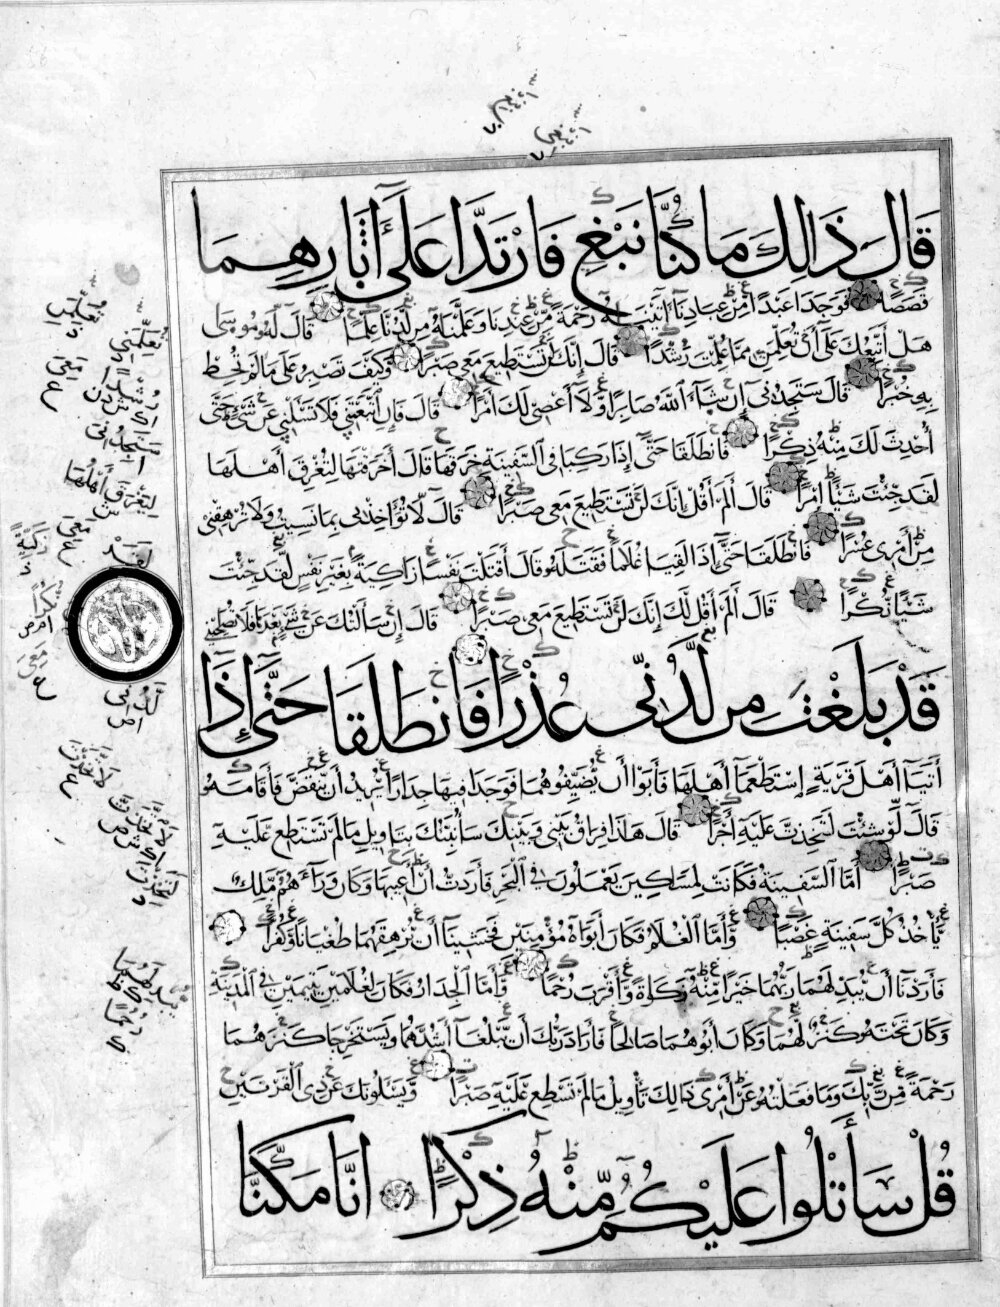 قَالَ ذَالِكَ مَا كُنَّا نَبْغِ فَارْتَدَّا عَلَىٰ آثَارِهِمَا
قَصَصًا فَوَجَدَا عَبْدًا مِنْ عِبَادِنَا آتَيْنَاهُ رَحْمَةً مِنْ عِنْدِنَا وَعَلَّمْنَاهُ مِنْ لَدُنَّا عِلْمًا قَالَ لَهُ مُوسَى
هَلْ أَتَّبِعُكَ عَلَى أَنْ تُعَلِّمَنِ مِمَّا عُلِّمْتَ رُشْدًا قَالَ إِنَّكَ لَنْ تَسْتَطِيعَ مَعِي صَبْرًا وَكَيْفَ تَصْبِرُ عَلَى مَا لَمْ تُحِطْ
بِهِ خُبْرًا قَالَ سَتَجِدُنِي إِنْ شَاءَ اللَّهُ صَابِرًا وَلَا أَعْصِي لَكَ أَمْرًا قَالَ فَإِنِ اتَّبَعْتَنِي فَلَا تَسْأَلْنِي عَنْ شَيْءٍ حَتَّى
أُحْدِثَ لَكَ مِنْهُ ذِكْرًا فَانْطَلَقَا حَتَّى إِذَا رَكِبَا فِي السَّفِينَةِ خَرَقَهَا قَالَ أَخَرَقْتَهَا لِتُغْرِقَ أَهْلَهَا
لَقَدْ جِئْتَ شَيْئًا إِمْرًا قَالَ أَلَمْ أَقُلْ إِنَّكَ لَنْ تَسْتَطِيعَ مَعِي صَبْرًا قَالَ لَا تُؤَاخِذْنِي بِمَا نَسِيتُ وَلَا تُرْهِقْنِي
مِنْ أَمْرِي عُسْرًا فَانْطَلَقَا حَتَّى إِذَا لَقِيَا غُلَامًا فَقَتَلَهُ قَالَ أَقَتَلْتَ نَفْسًا زَاكِيَةً بِغَيْرِ نَفْسٍ لَقَدْ جِئْتَ
شَيْئًا نُكْرًا قَالَ أَلَمْ أَقُلْ لَكَ إِنَّكَ لَنْ تَسْتَطِيعَ مَعِي صَبْرًا قَالَ إِنْ سَأَلْتُكَ عَنْ شَيْءٍ بَعْدَهَا فَلَا تُصَاحِبْنِي
قَدْ بَلَغْتَ مِنْ لَدُنِّي عُذْرًا فَانْطَلَقَا حَتَّىٰ إِذَا
أَتَيَا أَهْلَ قَرْيَةٍ اسْتَطْعَمَا أَهْلَهَا فَأَبَوْا أَنْ يُضَيِّفُوهُمَا فَوَجَدَا فِيهَا جِدَارًا يُرِيدُ أَنْ يَنْقَضَّ فَأَقَامَهُ
قَالَ لَوْ شِئْتَ لَتَخِذْتَ عَلَيْهِ أَجْرًا قَالَ هَاذَا فِرَاقُ بَيْنِي وَبَيْنِكَ سَأُنَبِّئُكَ بِتَأْوِيلِ مَا لَمْ تَسْتَطِعْ عَلَيْهِ
صَبْرًا أَمَّا السَّفِينَةُ فَكَانَتْ لِمَسَاكِينَ يَعْمَلُونَ فِي الْبَحْرِ فَأَرَدْتُ أَنْ أَعِيبَهَا وَكَانَ وَرَاءَهُمْ مَلِكٌ
يَأْخُذُ كُلَّ سَفِينَةٍ غَصْبًا وَأَمَّا الْغُلَامُ فَكَانَ أَبَوَاهُ مُؤْمِنَيْنِ فَخَشِينَا أَنْ يُرْهِقَهُمَا طُغْيَانًا وَكُفْرًا
فَأَرَدْنَا أَنْ يُبْدِلَهُمَا رَبُّهُمَا خَيْرًا مِنْهُ زَكَاةً وَأَقْرَبَ رُحْمًا وَأَمَّا الْجِدَارُ فَكَانَ لِغُلَامَيْنِ يَتِيمَيْنِ فِي الْمَدِينَةِ
وَكَانَ تَحْتَهُ كَنْزٌ لَهُمَا وَكَانَ أَبُوهُمَا صَالِحًا فَأَرَادَ رَبُّكَ أَنْ يَبْلُغَا أَشُدَّهُمَا وَيَسْتَخْرِجَا كَنْزَهُمَا
رَحْمَةً مِنْ رَبِّكَ وَمَا فَعَلْتُهُ عَنْ أَمْرِي ذَالِكَ تَأْوِيلُ مَا لَمْ تَسْطِعْ عَلَيْهِ صَبْرًا وَيَسْأَلُونَكَ عَنْ ذِي الْقَرْنَيْنِ
قُلْ سَأَتْلُوا عَلَيْكُمْ مِنْهُ ذِكْرًا إِنَّا مَكَّنَّا